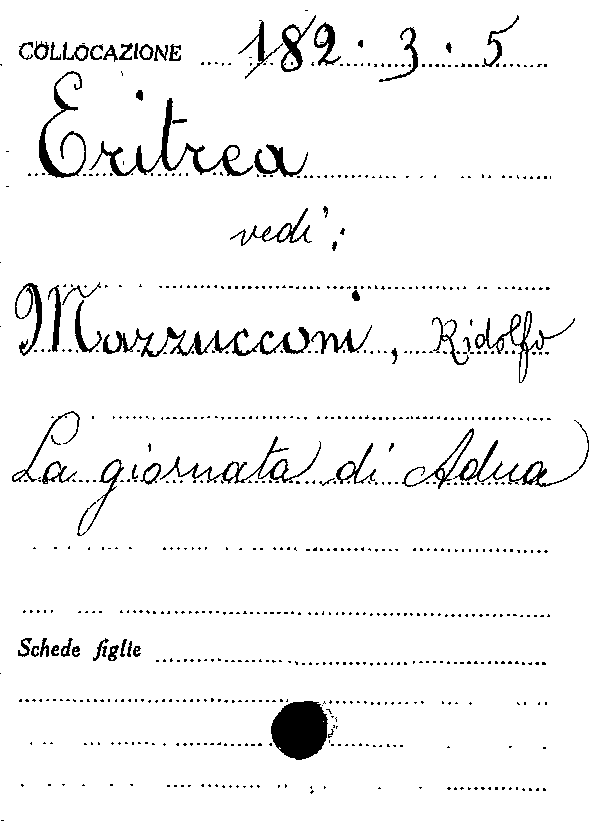 COLLOCAZIONE 182.3.5
Eritrea
vedi:
Mazzucconi, Ridolfo
La giornata di Adua
Schede figlie